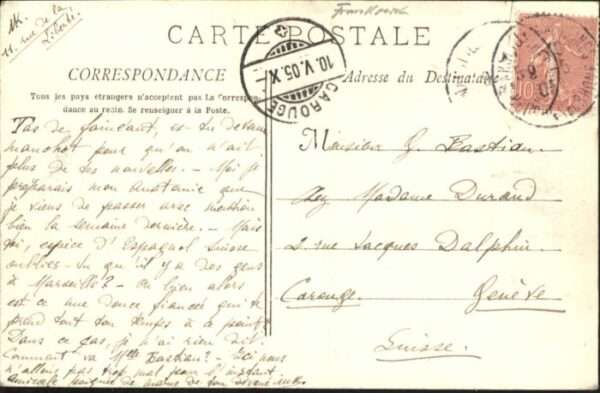 AK.
11, rue de la
Liberté
Frankreich
CARTE POSTALE
CORRESPONDANCE
Tous les pays étrangers n'acceptent pas la Correspon-
dance au recto. Se renseigner à la Poste.
Adresse du Destinataire
CAROUGE
10.V.05.X
10
Tas de fainéant, es-tu devenu
manchot pour qu'on n'ait
plus de tes nouvelles. - Moi je
préparais mon Anatomie que
je viens de passer avec mention
bien la semaine dernière. - Mais
toi, espèce d'Espagnol Suisse
oublies-tu qu'il y a des gens
à Marseille? - Ou bien alors
est ce une douce fiancée qui te
prend tout ton temps à ce point?
Dans ce cas, je n'ai rien dit.
Comment va Mlle Bastian? - Ici nous
n'allons pas trop mal pour l'instant
amicale poignée de mains de ton
Monsieur G. Bastian
chez Madame Durand
2, rue Jacques Dalphin
Carouge. Genève
Suisse.